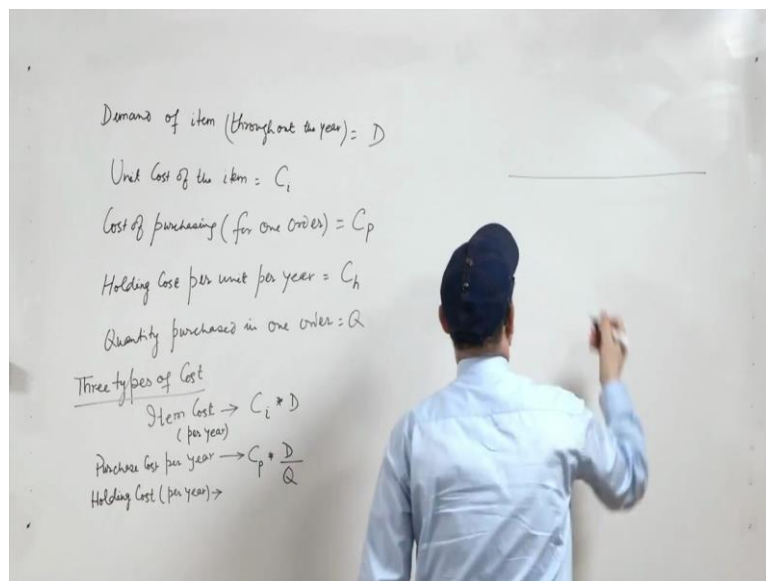 Demand of item (throughout the year) = D
Unit Cost of the item = Ci
Cost of purchasing (for one order) = Cp
Holding Cost per unit per year = Ch
Quantity purchased in one order = Q
Three types of Cost
Item Cost → Ci * D
(per year)
Purchase Cost per year → Cp * D/Q
Holding Cost (per year) →